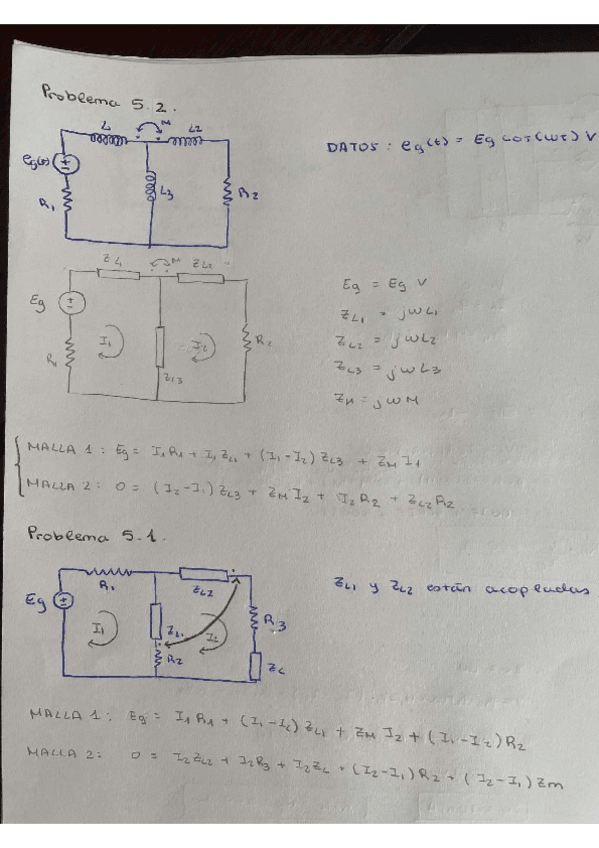 Problema 5.2.
L M L2
eg(t) + - L3
R1 R2
DATOS: eg(t) = Eg cos(ωt) V
ZL1 M ZL2
Eg + -
R1 I1 ZL3 I2 R2
Eg = Eg V
ZL1 = jωL1
ZL2 = jωL2
ZL3 = jωL3
ZM = jωM
MALLA 1: Eg = I1R1 + I1ZL1 + (I1-I2) ZL3 + ZM I1
MALLA 2: 0 = (I2-I1) ZL3 + ZM I2 + I2R2 + ZL2R2
Problema 5.1.
R1 ZL2
Eg + - I1 ZL1 I2 R3
R2 ZL
ZL1 y ZL2 están acopladas
MALLA 1: Eg = I1R1 + (I1-I2) ZL1 + ZM I2 + (I1-I2) R2
MALLA 2: 0 = I2ZL2 + I2R3 + I2ZL + (I2-I1) R2 + (I2-I1) Zm